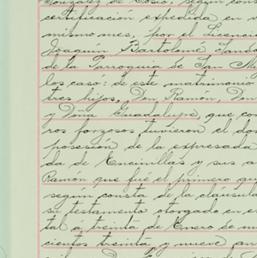 Gonzalez de Cosio, segun cons
certificacion expedida en v
mismo mes, por el Licencia
Joaquin Bartolomé
de la Parroquia de San Mi
los casó: de este matrimonio
tres hijos, Don Ramón, Don
y Doña Guadalupe que co
ros forzosos tuvieron el do
posesión de la expresada
da de Encinillas y sus a
Ramón que fué el primero qu
segun consta de la cláusula
su testamento otorgado en es
tal a treinta de Enero de m
cientos treinta y nueve an